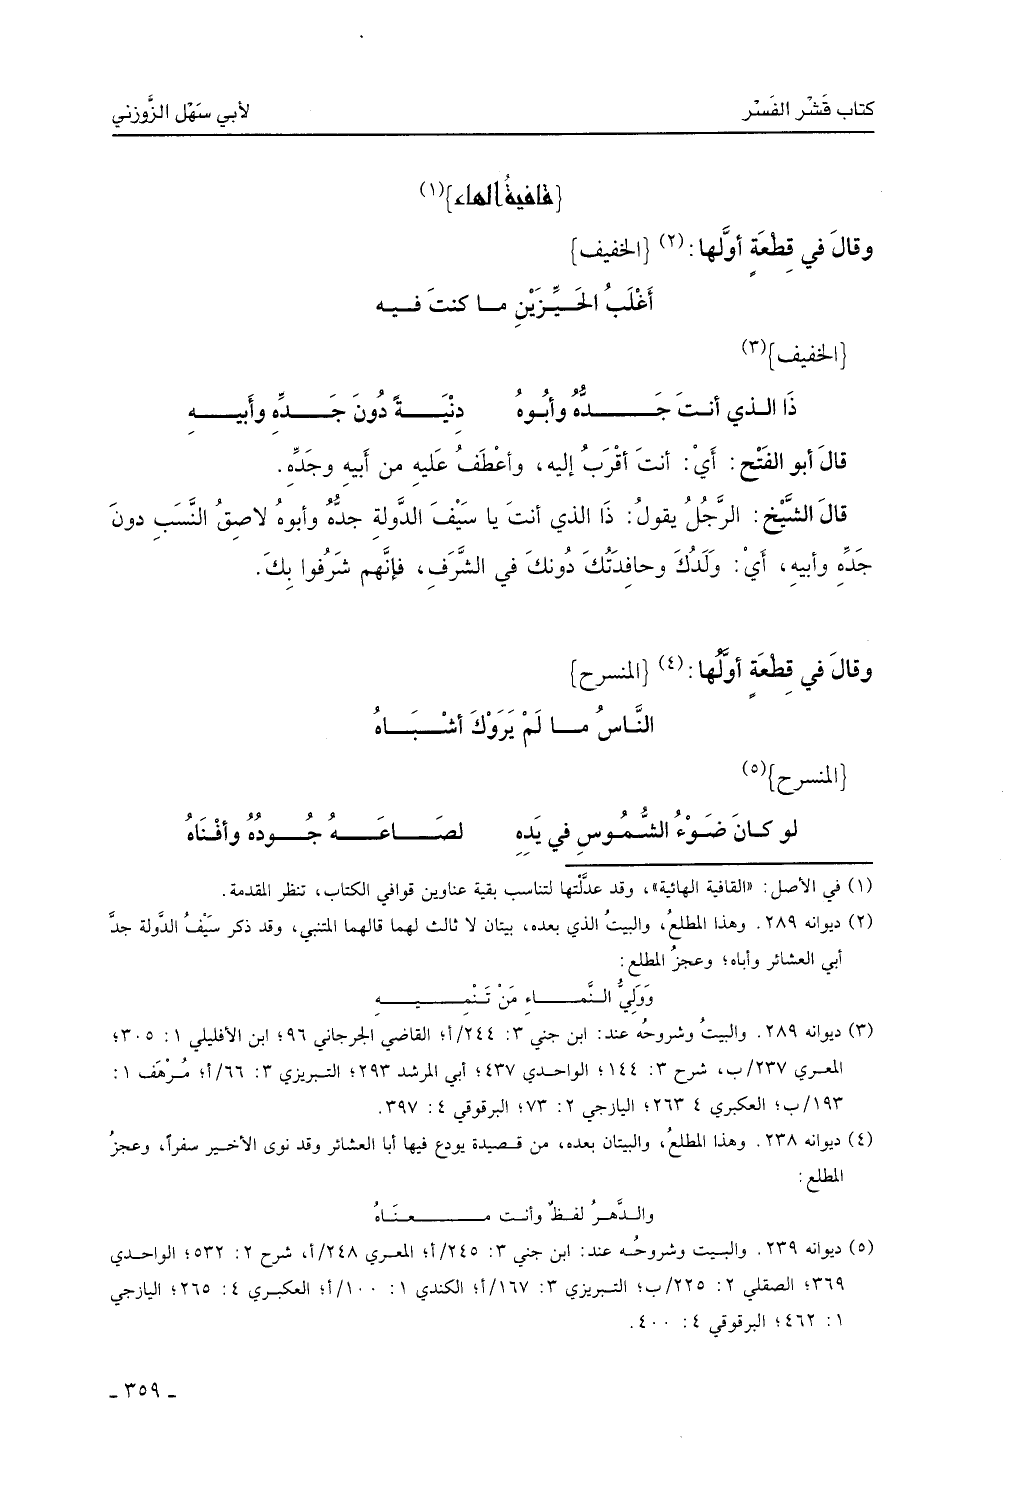 كتاب قَشْر الفَسْر لأبي سَهْل الزَّوزني
{قافيةُ الهاء}(١)
وقالَ في قِطْعَةٍ أوَّلُها:(٢) {الخفيف}
أَغْلَبُ الحَيِّزَيْنِ ما كنتَ فيه
{الخفيف}(٣)
ذَا الذي أنتَ جَدُّهُ وأبُوهُ دِنْيَةً دُونَ جَدِّهِ وأَبيهِ
قالَ أبو الفَتْح: أَيْ: أنتَ أقْرَبُ إليه، وأعْطَفُ عَليهِ من أبيهِ وجَدِّهِ.
قالَ الشَّيْخ: الرَّجُلُ يقولُ: ذَا الذي أنتَ يا سَيْفَ الدَّولةِ جدُّهُ وأبوهُ لاصِقُ النَّسَبِ دونَ
جَدِّهِ وأبيهِ، أَيْ: وَلَدُكَ وحافِدَتُكَ دُونكَ في الشَّرَفِ، فإنَّهم شَرُفُوا بِكَ.
وقالَ في قِطْعَةٍ أوَّلُها:(٤) {المنسرح}
النَّاسُ ما لَمْ يَرَوْكَ أشْبَاهُ
{المنسرح}(٥)
لو كانَ ضَوْءُ الشُّمُوسِ في يَدِهِ لصَاعَهُ جُودُهُ وأفْنَاهُ
(١) في الأصل: «القافية الهائية»، وقد عدَّلْتها لتناسب بقية عناوين قوافي الكتاب، تنظر المقدمة.
(٢) ديوانه ٢٨٩. وهذا المطلعُ، والبيتُ الذي بعده، بيتان لا ثالث لهما قالهما المتنبي، وقد ذكر سَيْفُ الدَّولة جدَّ
أبي العشائر وأباه؛ وعجزُ المطلع:
وَوَلِيُّ النَّمَاءِ مَنْ تَنْمِيهِ
(٣) ديوانه ٢٨٩. والبيتُ وشروحُه عند: ابن جني ٣: ٢٤٤/أ؛ القاضي الجرجاني ٩٦؛ ابن الأفليلي ١: ٣٠٥؛
المعري ٢٣٧/ب، شرح ٣: ١٤٤؛ الواحدي ٤٣٧؛ أبي المرشد ٢٩٣؛ التبريزي ٣: ٦٦/أ؛ مُرْهَف ١:
١٩٣/ب؛ العكبري ٤ ٢٦٣؛ اليازجي ٢: ٧٣؛ البرقوقي ٤: ٣٩٧.
(٤) ديوانه ٢٣٨. وهذا المطلعُ، والبيتان بعده، من قصيدة يودع فيها أبا العشائر وقد نوى الأخير سفراً، وعجزُ
المطلع:
والدَّهرُ لفظٌ وأنت معنَاهُ
(٥) ديوانه ٢٣٩. والبيت وشروحُه عند: ابن جني ٣: ٢٤٥/أ؛ المعري ٢٤٨/أ، شرح ٢: ٥٣٢؛ الواحدي
٣٦٩؛ الصقلي ٢: ٢٢٥/ب؛ التبريزي ٣: ١٦٧/أ؛ الكندي ١: ١٠٠/أ؛ العكبري ٤: ٢٦٥؛ اليازجي
١: ٤٦٢؛ البرقوقي ٤: ٤٠٠.
ـ ٣٥٩ ـ